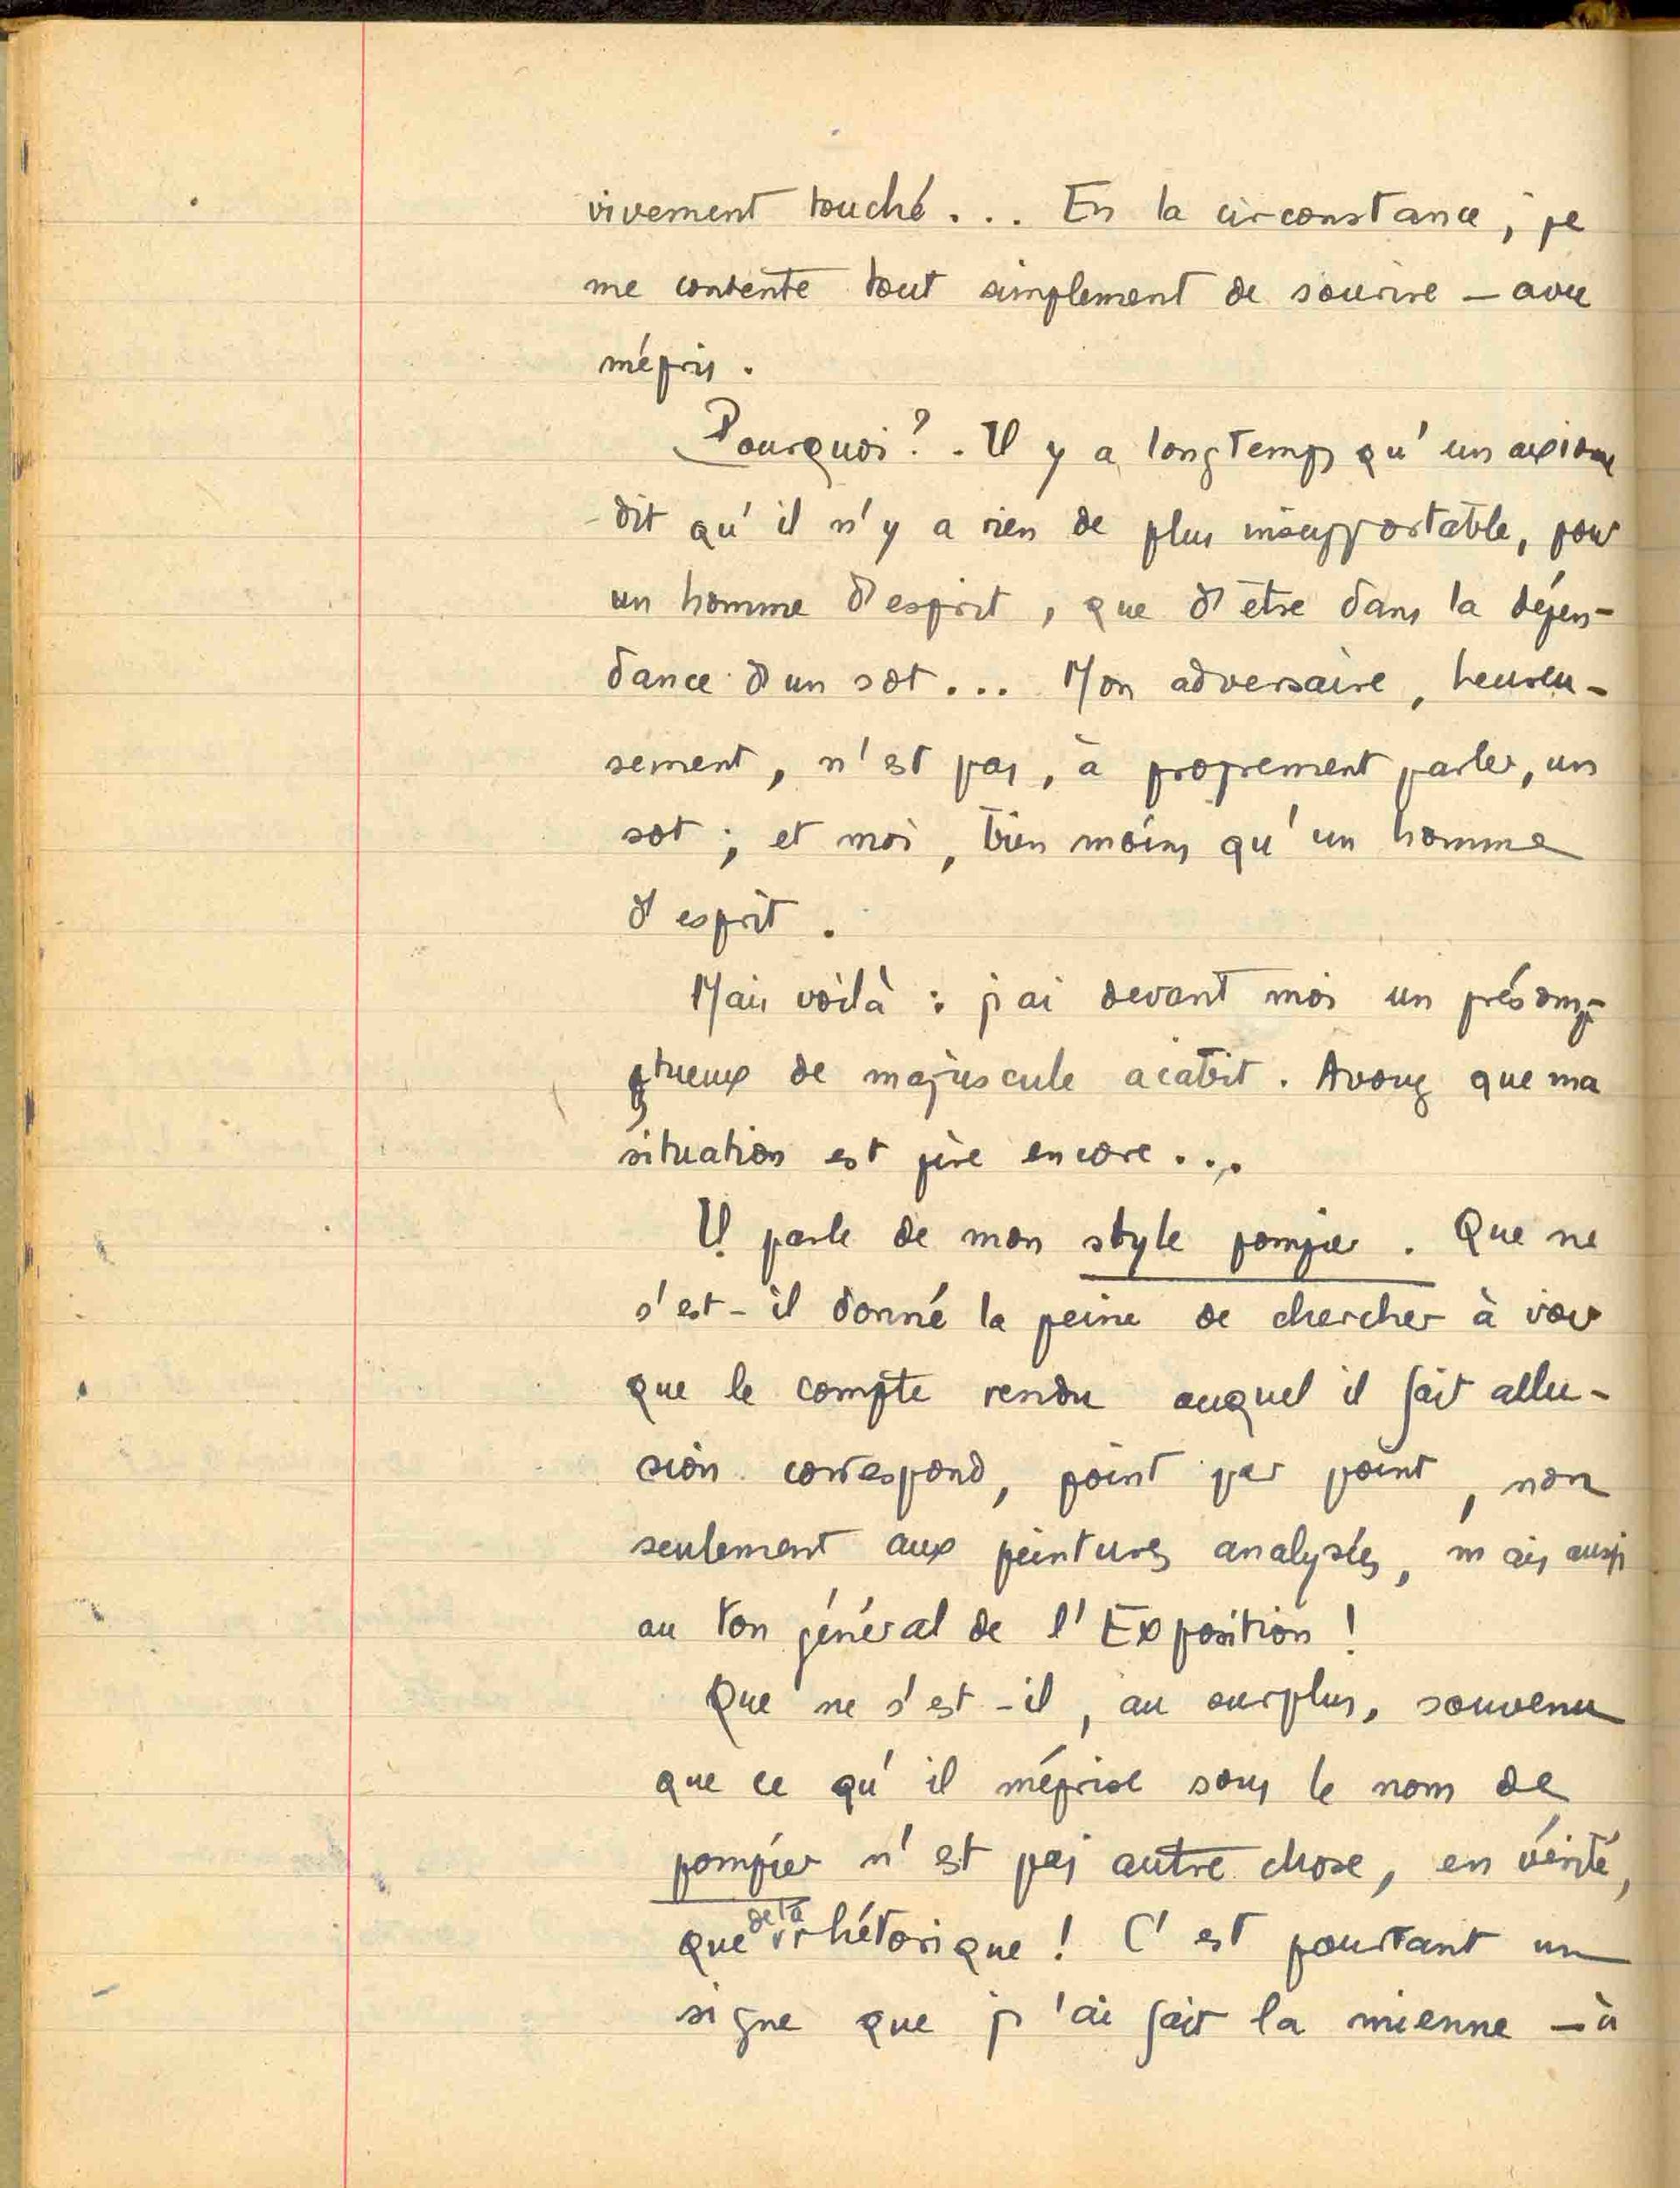 vivement touché... En la circonstance, je
me contente tout simplement de sourire – avec
mépris.
Pourquoi ? . Il y a longtemps qu'un axiome
dit qu'il n'y a rien de plus insupportable, pour
un homme d'esprit, que d'être dans la dépen-
dance d'un sot... Mon adversaire, heureu-
sement, n'est pas, à proprement parler, un
sot ; et moi, bien moins qu'un homme
d'esprit.
Mais voilà : j'ai devant moi un présomp-
tueux de majuscule acabit. Avouez que ma
situation est pire encore...
Il parle de mon style pompier. Que ne
s'est-il donné la peine de chercher à voir
que le compte rendu auquel il fait allu-
sion correspond, point par point, non
seulement aux peintures analysées, mais aussi
au ton général de l'Exposition !
Que ne s'est-il, au surplus, souvenu
que ce qu'il méprise sous le nom de
pompier n'est pas autre chose, en vérité,
que de la rhétorique ! C'est pourtant un
signe que j'ai fait la mienne – à